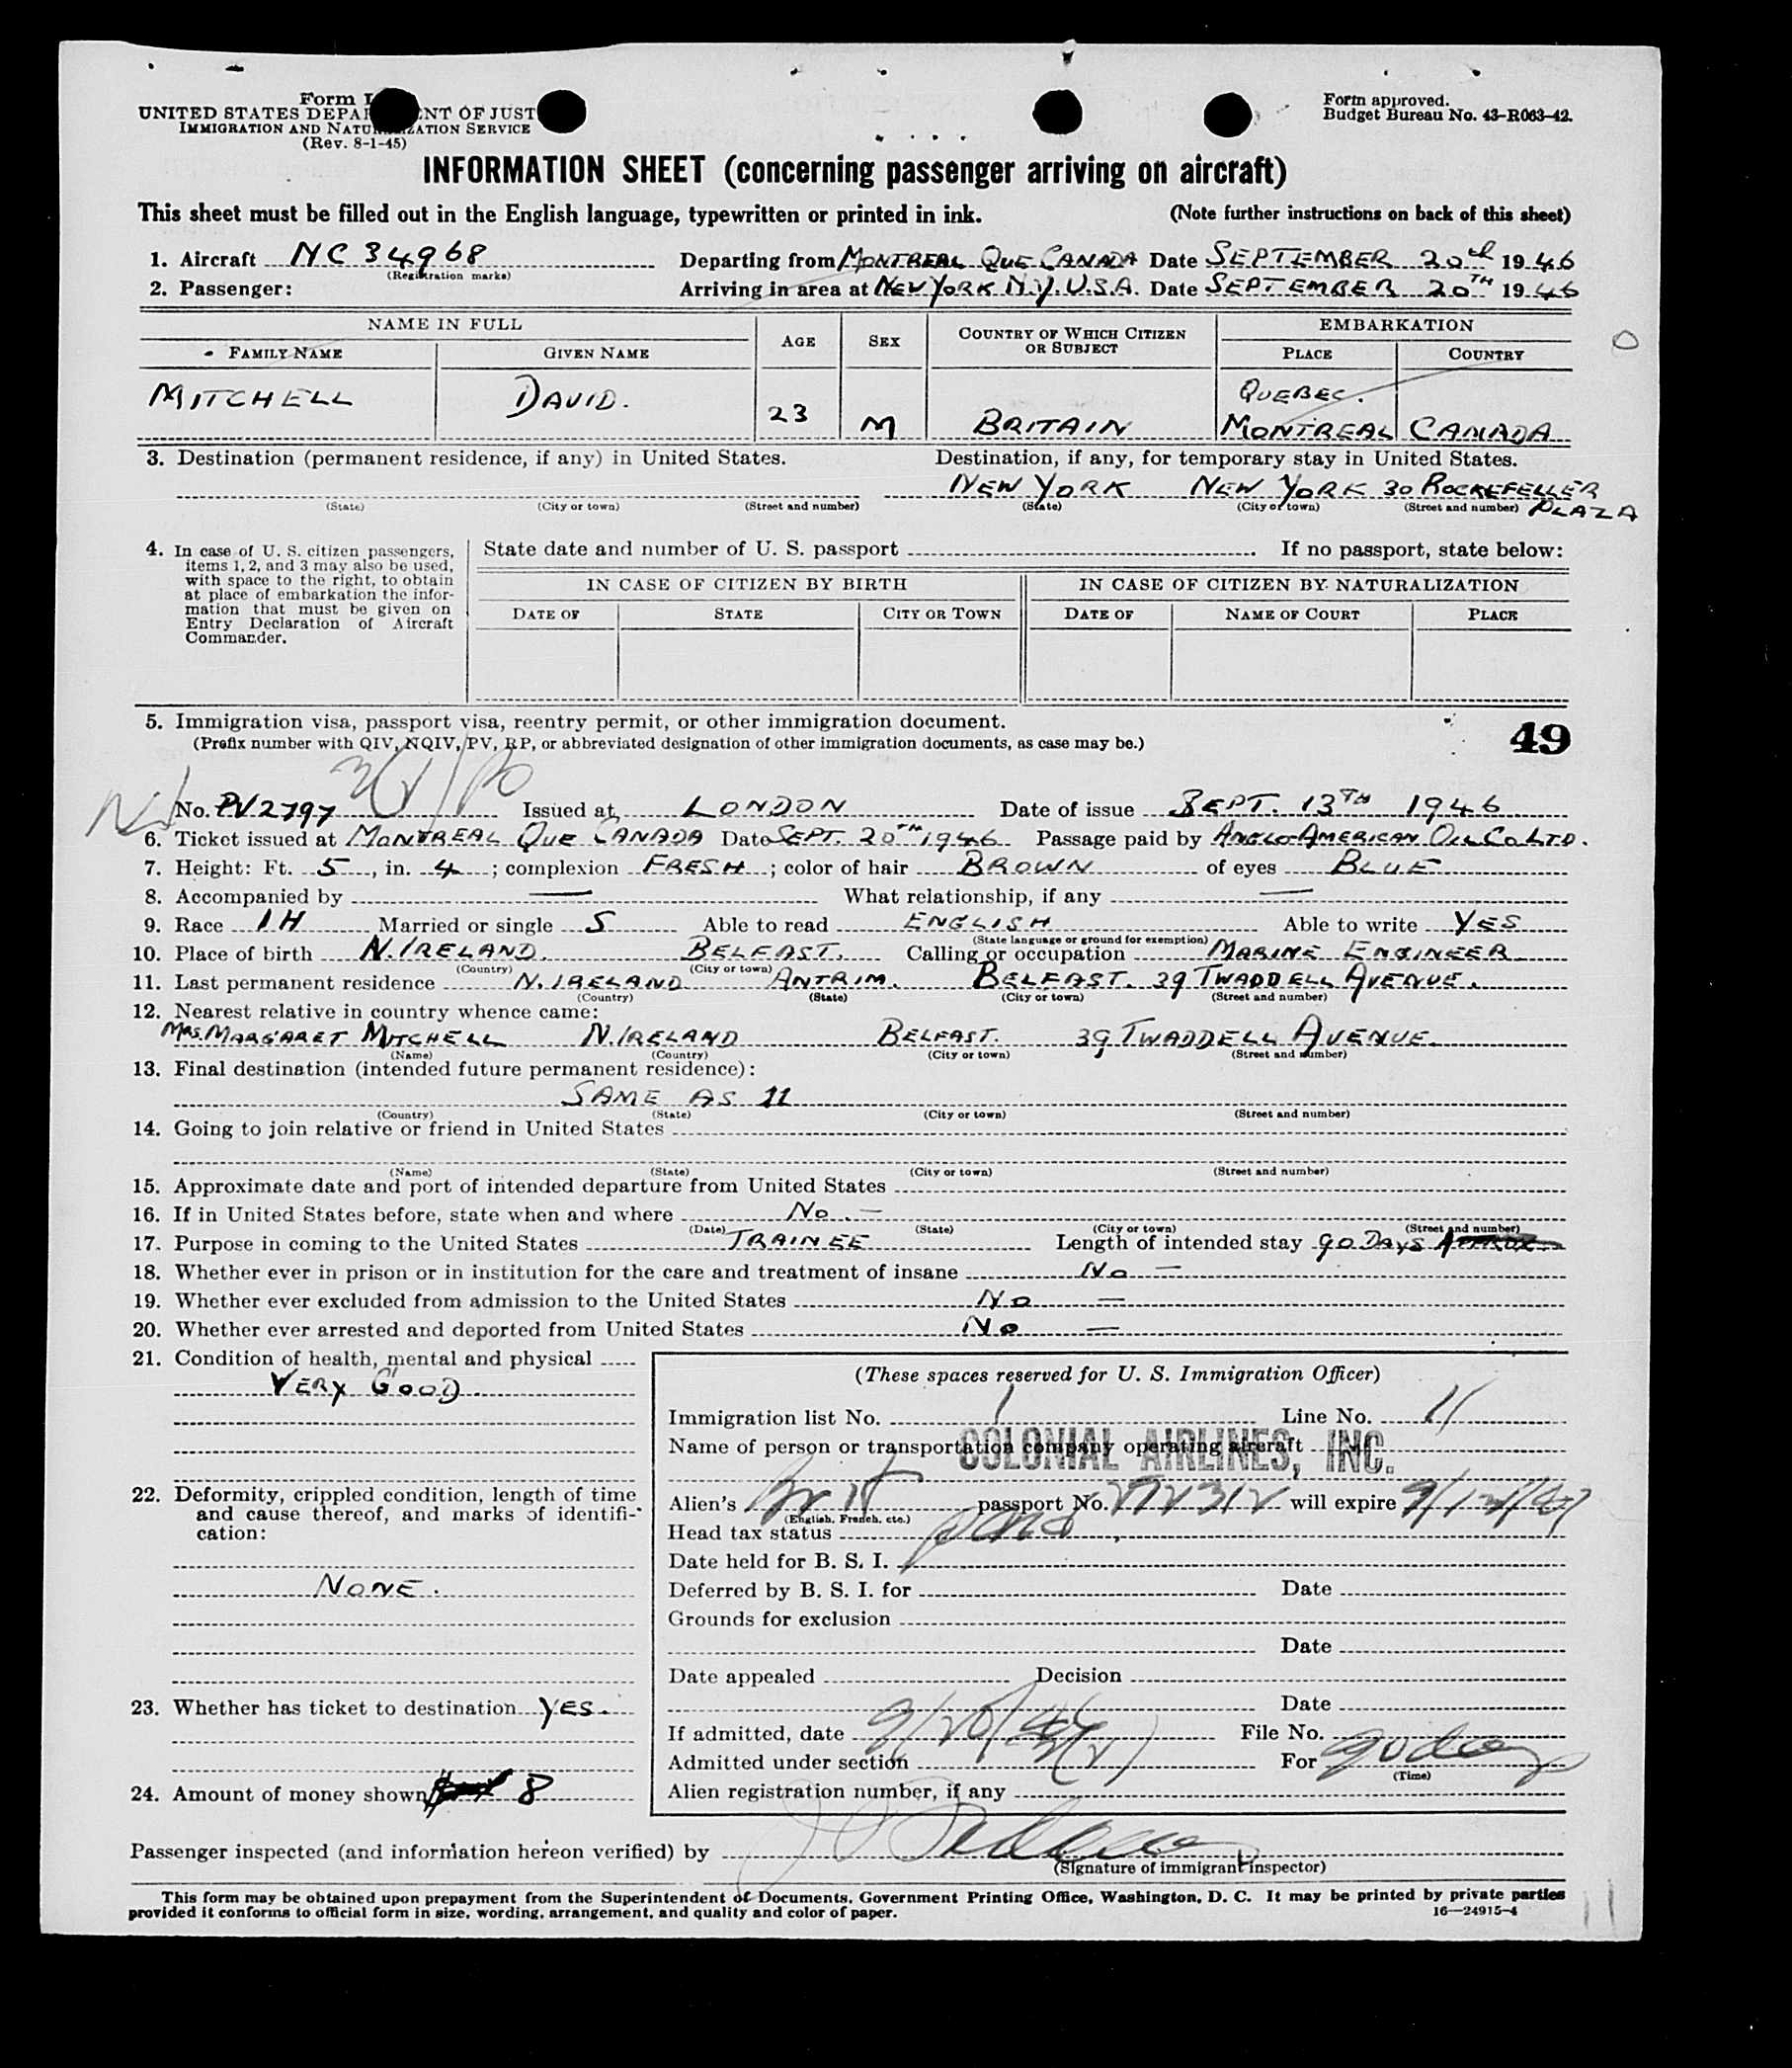 Form I
UNITED STATES DEPA ENT OF JUST
IMMIGRATION AND NATURALIZATION SERVICE
(Rev. 8-1-45)
Form approved.
Budget Bureau No. 43-R063-42.
INFORMATION SHEET (concerning passenger arriving on aircraft)
This sheet must be filled out in the English language, typewritten or printed in ink. (Note further instructions on back of this sheet)
1. Aircraft NC 34968 Departing from MONTREAL QUE CANADA Date SEPTEMBER 20th 1946
(Registration marks)
2. Passenger: Arriving in area at NEW YORK N.Y. U.S.A. Date SEPTEMBER 20TH 1946
NAME IN FULL AGE SEX COUNTRY OF WHICH CITIZEN OR SUBJECT EMBARKATION
FAMILY NAME GIVEN NAME PLACE COUNTRY
MITCHELL DAVID. 23 M BRITAIN QUEBEC. MONTREAL CANADA
3. Destination (permanent residence, if any) in United States. Destination, if any, for temporary stay in United States.
NEW YORK NEW YORK 30 ROCKEFELLER PLAZA
(State) (City or town) (Street and number) (State) (City or town) (Street and number)
4. In case of U. S. citizen passengers, items 1, 2, and 3 may also be used, with space to the right, to obtain at place of embarkation the information that must be given on Entry Declaration of Aircraft Commander.
State date and number of U. S. passport If no passport, state below:
IN CASE OF CITIZEN BY BIRTH IN CASE OF CITIZEN BY NATURALIZATION
DATE OF STATE CITY OR TOWN DATE OF NAME OF COURT PLACE
5. Immigration visa, passport visa, reentry permit, or other immigration document.
(Prefix number with QIV, NQIV, PV, RP, or abbreviated designation of other immigration documents, as case may be.)
49
No. PV2797 Issued at LONDON Date of issue SEPT. 13TH 1946
6. Ticket issued at MONTREAL QUE CANADA Date SEPT. 20TH 1946 Passage paid by ANGLO-AMERICAN OIL CO LTD.
7. Height: Ft. 5, in. 4; complexion FRESH; color of hair BROWN of eyes BLUE
8. Accompanied by — What relationship, if any —
9. Race IH Married or single S Able to read ENGLISH Able to write YES
(State language or ground for exemption)
10. Place of birth N. IRELAND. BELFAST. Calling or occupation MARINE ENGINEER
(Country) (City or town)
11. Last permanent residence N. IRELAND ANTRIM. BELFAST. 39 TWADDELL AVENUE.
(Country) (State) (City or town) (Street and number)
12. Nearest relative in country whence came:
MRS. MARGARET MITCHELL N. IRELAND BELFAST. 39 TWADDELL AVENUE.
(Name) (Country) (City or town) (Street and number)
13. Final destination (intended future permanent residence):
SAME AS 11
(Country) (State) (City or town) (Street and number)
14. Going to join relative or friend in United States
(Name) (State) (City or town) (Street and number)
15. Approximate date and port of intended departure from United States
16. If in United States before, state when and where No. —
(Date) (State) (City or town) (Street and number)
17. Purpose in coming to the United States TRAINEE Length of intended stay 90 DAYS
18. Whether ever in prison or in institution for the care and treatment of insane No —
19. Whether ever excluded from admission to the United States No —
20. Whether ever arrested and deported from United States No —
21. Condition of health, mental and physical
VERY GOOD.
22. Deformity, crippled condition, length of time and cause thereof, and marks of identification:
NONE.
23. Whether has ticket to destination YES.
24. Amount of money shown 8
(These spaces reserved for U. S. Immigration Officer)
Immigration list No. 1 Line No. 11
Name of person or transportation company operating aircraft
COLONIAL AIRLINES, INC.
Alien's Brit passport No. will expire
(English, French, etc.)
Head tax status
Date held for B. S. I.
Deferred by B. S. I. for Date
Grounds for exclusion
Date
Date appealed Decision
Date
If admitted, date 9/20/46 File No.
Admitted under section 3(2) For 90 days
(Time)
Alien registration number, if any
Passenger inspected (and information hereon verified) by
(Signature of immigrant inspector)
This form may be obtained upon prepayment from the Superintendent of Documents, Government Printing Office, Washington, D. C. It may be printed by private parties
provided it conforms to official form in size, wording, arrangement, and quality and color of paper. 16—24915-4
11